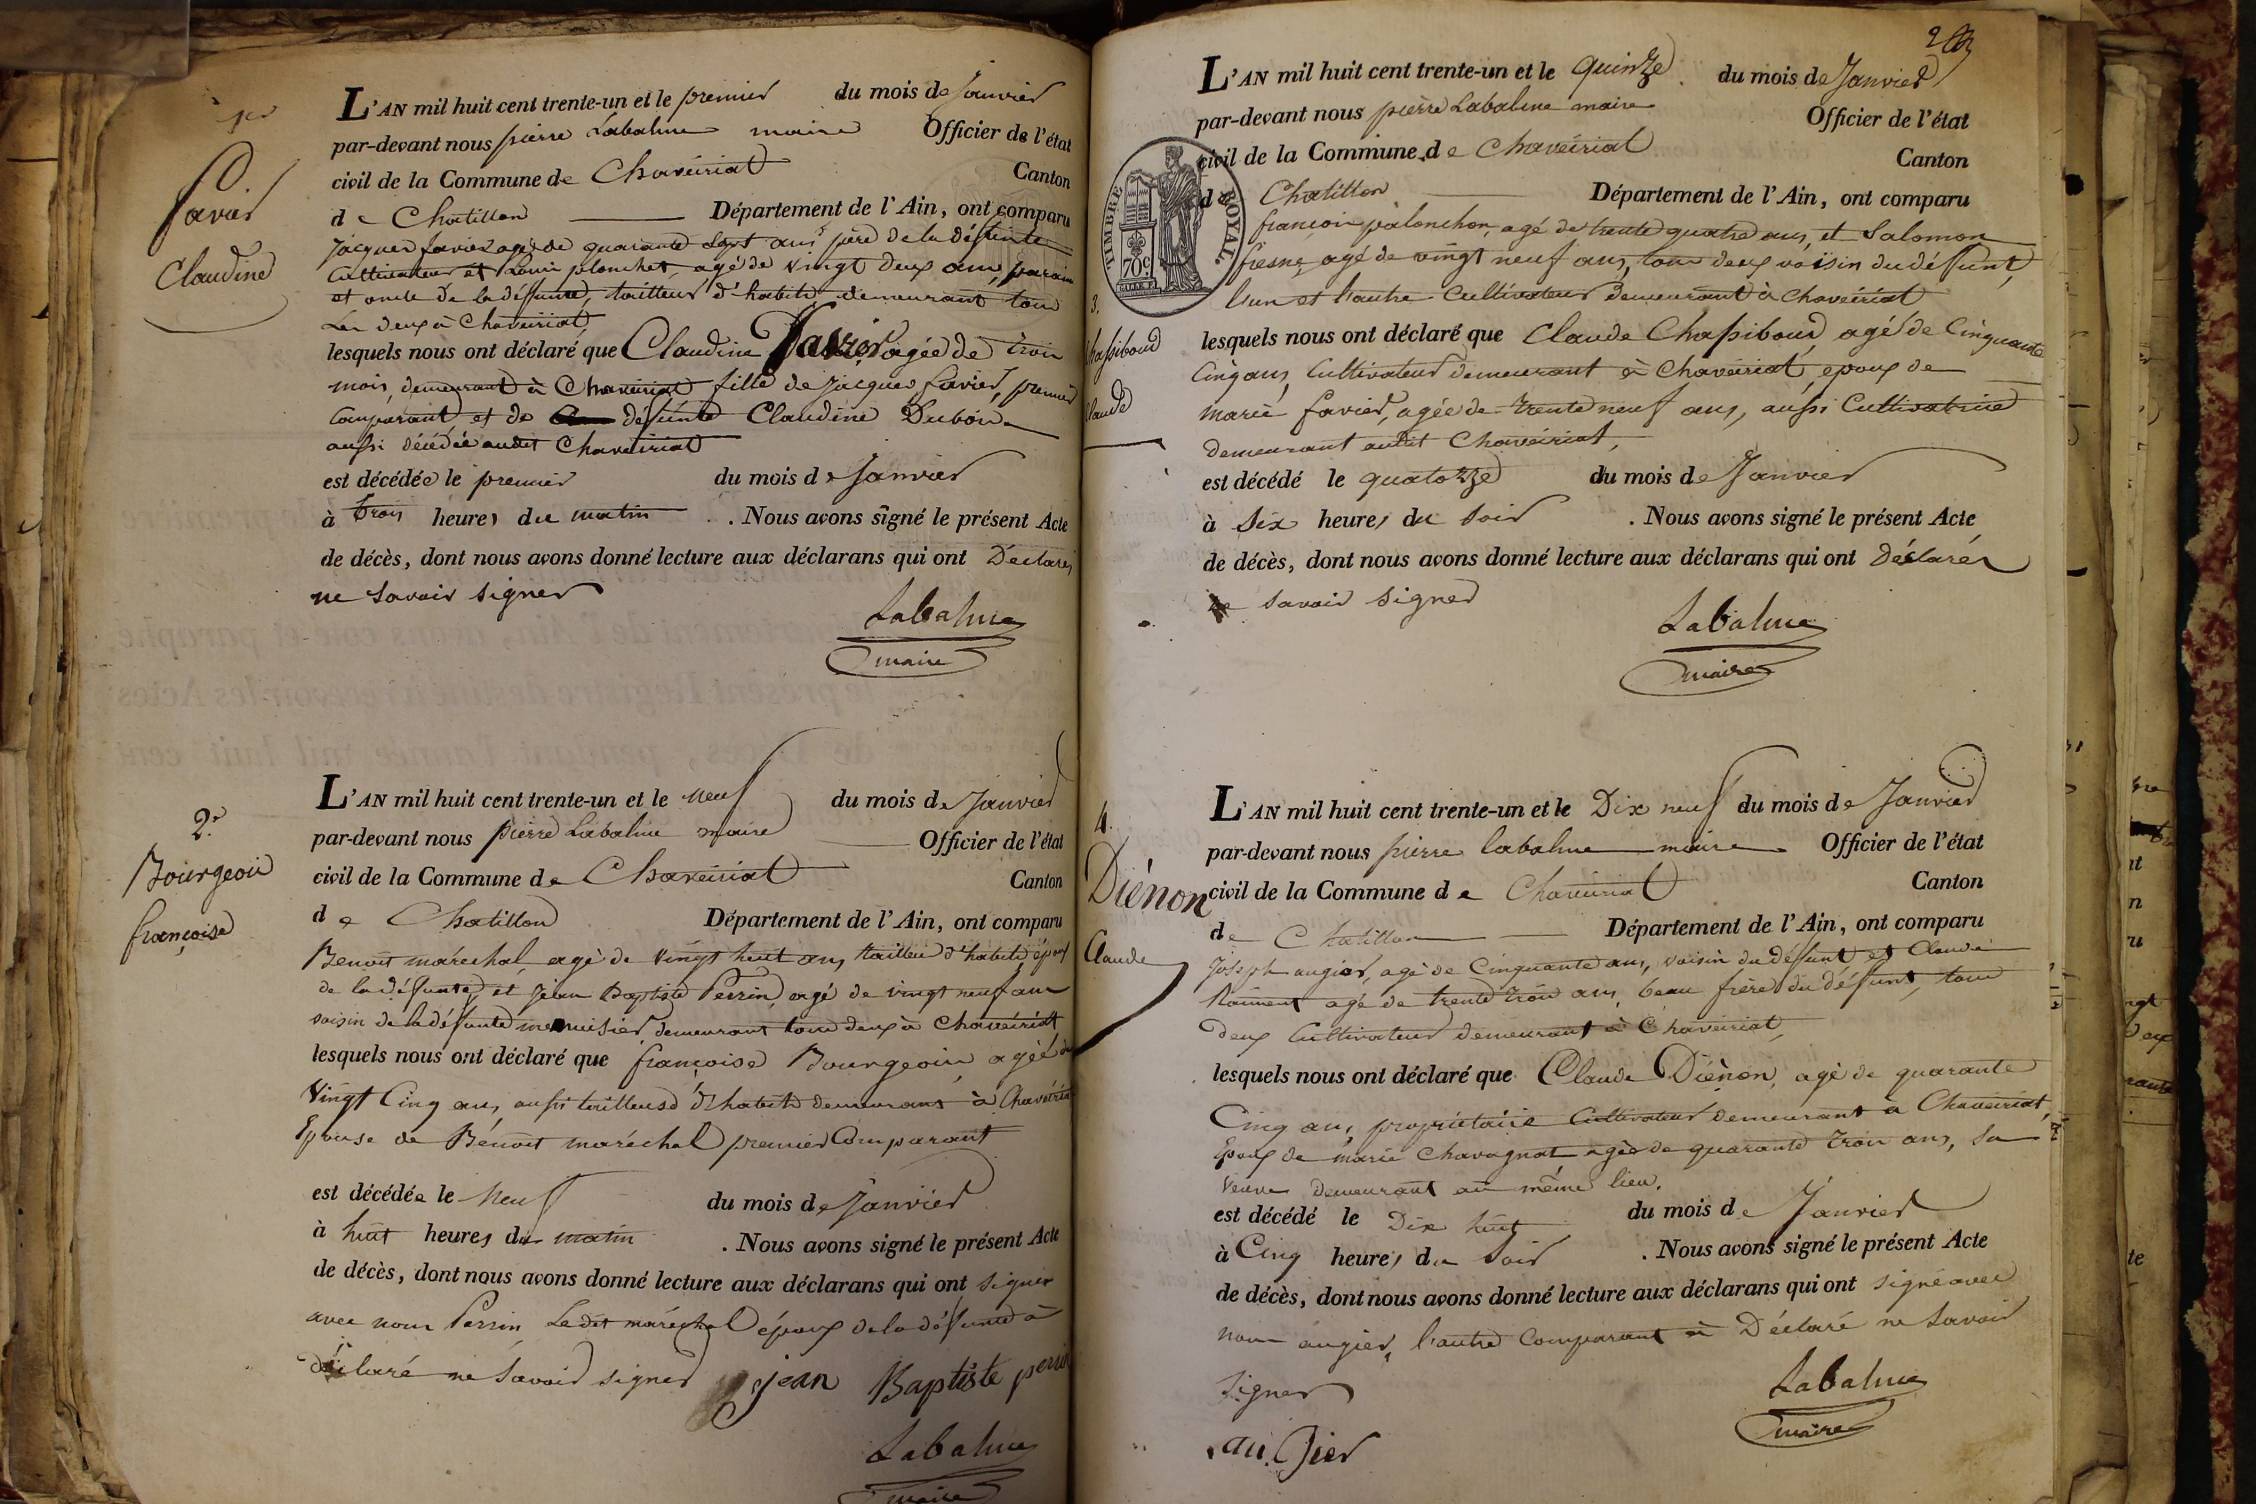 1er
favier
Claudine
L'AN mil huit cent trente-un et le premier du mois de Janvier
par-devant nous pierre Labalme maire Officier de l'état
civil de la Commune de Chaveiriat Canton
de Chatillon Département de l'Ain, ont comparu
jacques favier agé de quarante sept ans père de la défunte
Cultivateur et Louis planchet, agé de vingt deux ans, parain
et oncle de la défunte, tailleur d'habits demeurant tous
Les deux à Chaveiriat,
lesquels nous ont déclaré que Claudine Favier agée de trois
mois, demeurant à Chaveiriat fille de jacques favier, premier
Comparant et de défunte Claudine Dubois
aussi décédée audit Chaveiriat
est décédée le premier du mois de Janvier
à trois heures du matin . Nous avons signé le présent Acte
de décès, dont nous avons donné lecture aux déclarans qui ont Déclarés
ne savoir signer
Labalme
maire
2e
Bourgeois
françoise
L'AN mil huit cent trente-un et le neuf du mois de Janvier
par-devant nous pierre Labalme maire Officier de l'état
civil de la Commune de Chaveiriat Canton
de Chatillon Département de l'Ain, ont comparu
Benoit maréchal, agé de vingt huit ans, tailleur d'habits époux
de la défunte, et Jean Baptiste Perrin, agé de vingt neuf ans
voisin de la défunte menuisier demeurant tous deux à Chaveiriat
lesquels nous ont déclaré que françoise Bourgeois agée de
Vingt Cinq ans, aussi tailleuse d'habits demeurant à Chaveiriat
Epouse de Bénoit maréchal premier Comparant
est décédée le Neuf du mois de Janvier
à huit heures du matin . Nous avons signé le présent Acte
de décès, dont nous avons donné lecture aux déclarans qui ont signer
avec nous Perrin Ledit maréchal époux de la défunte à
déclaré ne savoir signer jean Baptiste perrin
Labalme
maire
2
L'AN mil huit cent trente-un et le quinze du mois de Janvier
par-devant nous pierre Labalme maire Officier de l'état
civil de la Commune de Chaveiriat Canton
de Chatillon Département de l'Ain, ont comparu
TIMBRE ROYAL.
70c
françois palonchon, agé de trente quatre ans, et Salomon
fresne, agé de vingt neuf ans, tous deux voisin du défunt,
l'un et l'autre Cultivateur demeurant à Chaveiriat
3.
Chassiboud
Claude
lesquels nous ont déclaré que Claude Chassiboud, agé de Cinquante
Cinq ans, Cultivateur demeurant à Chaveiriat, epoux de
marie favier, agée de trente neuf ans, aussi Cultivatrice
demeurant audit Chaveiriat,
est décédé le quatorze du mois de Janvier
à Six heures du soir . Nous avons signé le présent Acte
de décès, dont nous avons donné lecture aux déclarans qui ont Déclarés
ne savoir signer
Labalme
maire
4.
Diénon
Claude
L'AN mil huit cent trente-un et le Dix neuf du mois de Janvier
par-devant nous pierre labalme maire Officier de l'état
civil de la Commune de Chaveiriat Canton
de Chatillon Département de l'Ain, ont comparu
Joseph augier, agé de Cinquante ans, voisin du défunt et Claude
agé de trente trois ans, beau frère du défunt, tous
deux Cultivateur demeurant à Chaveiriat,
lesquels nous ont déclaré que Claude Diénon, agé de quarante
Cinq ans, propriétaire Cultivateur demeurant à Chaveiriat,
Epoux de marie Chavagnat agée de quarante trois ans, sa
veuve demeurant au même lieu.
est décédé le Dix huit du mois de Janvier
à Cinq heures du soir . Nous avons signé le présent Acte
de décès, dont nous avons donné lecture aux déclarans qui ont signé avec
nous augier, l'autre Comparant à Déclaré ne savoir
signer
Labalme
maire
au Gier